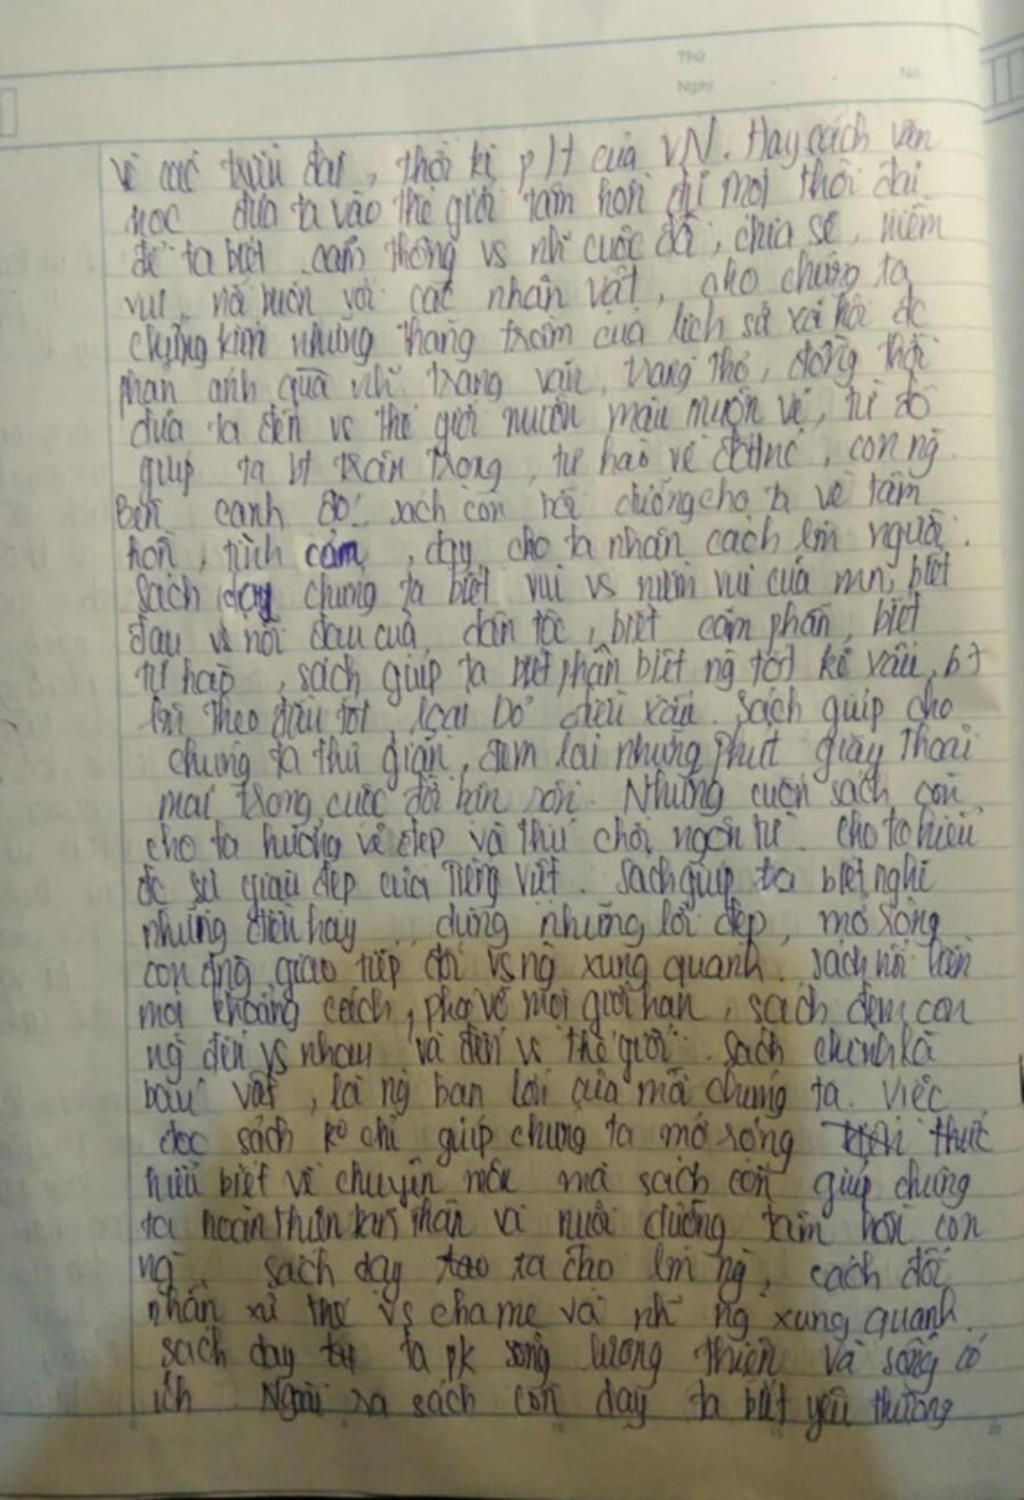 Thứ
Ngày No.
Về các triều đại, thời kì pH của VN. Hay sách văn
học đưa ta vào thế giới tâm hồn để mọi thời đại
để ta biết cảm thông vs nh~ cuộc đời, chia sẻ, niềm
vui, nỗi buồn với các nhân vật, cho chúng ta
chứng kiến những thăng trầm của lịch sử xã hội đc
phản ánh qua nh~ trang văn, trang thơ, đồng thời
đưa ta đến vs thế giới muôn màu muôn vẻ, từ đó
giúp ta bt trân trọng, tự hào về đất nc, con ng
Bên cạnh đó: sách còn bồi dưỡng cho ta về tâm
hồn, tình cảm, dạy cho ta nhân cách lm người.
Sách dạy chúng ta biết vui vs niềm vui của mn, biết
đau vs nỗi đau của dân tộc, biết căm phẫn, biết
tự hào, sách giúp ta biết phân biệt ng tốt kẻ xấu, bt
lm theo điều tốt, loại bỏ điều xấu. Sách giúp cho
chúng ta thư giãn, đem lại những phút giây thoải
mái trong cuộc đời bận rộn. Những cuốn sách còn
cho ta hướng vẻ đẹp và thú chơi ngôn từ. Cho ta hiểu
đc sự giàu đẹp của Tiếng Việt. Sách giúp ta biết nghĩ
những điều hay, dùng những lời đẹp, mở rộng
con đng giao tiếp đối vs ng xung quanh. Sách nối liền
mọi khoảng cách, phá vỡ mọi giới hạn, sách đem con
ng đến vs nhau và đến vs thế giới. Sách chính là
báu vật, là ng bạn lớn của mỗi chúng ta. Việc
đọc sách ko chỉ giúp chúng ta mở rộng thức
hiểu biết về chuyên môn mà sách còn giúp chúng
ta hoàn thiện bản thân và nuôi dưỡng tâm hồn con
ng. Sách dạy ta cho lm ng, cách đối
nhân xử thế vs cha mẹ và nh~ ng xung quanh.
Sách dạy ta pk sống lương thiện và sống có
ích. Ngoài ra sách còn dạy ta biết yêu thương